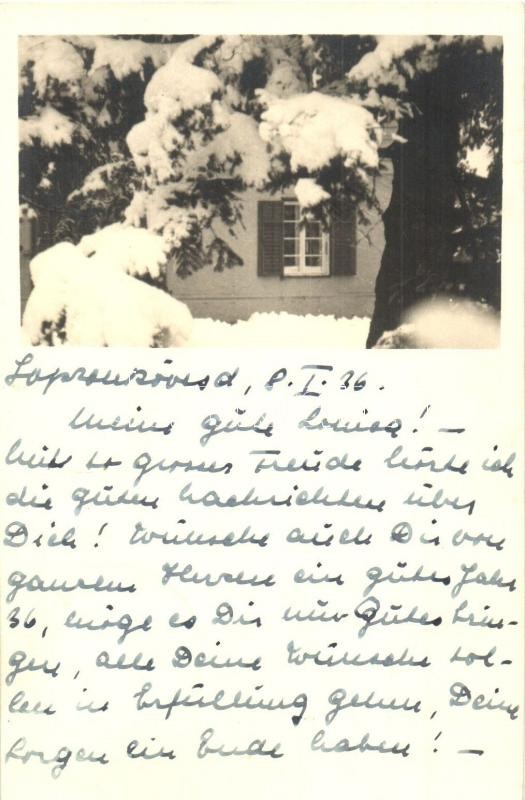 Sopronkövesd, 8.I.36.
Meine gute Louisa! —
Mit so grosser Freude hörte ich
die guten Nachrichten über
Dich! Wünsche auch Dir von
ganzem Herzen ein gutes Jahr
36, möge es Dir nur Gutes brin-
gen, alle Deine Wünsche sol-
len in Erfüllung gehen, Deine
Sorgen ein Ende haben! —